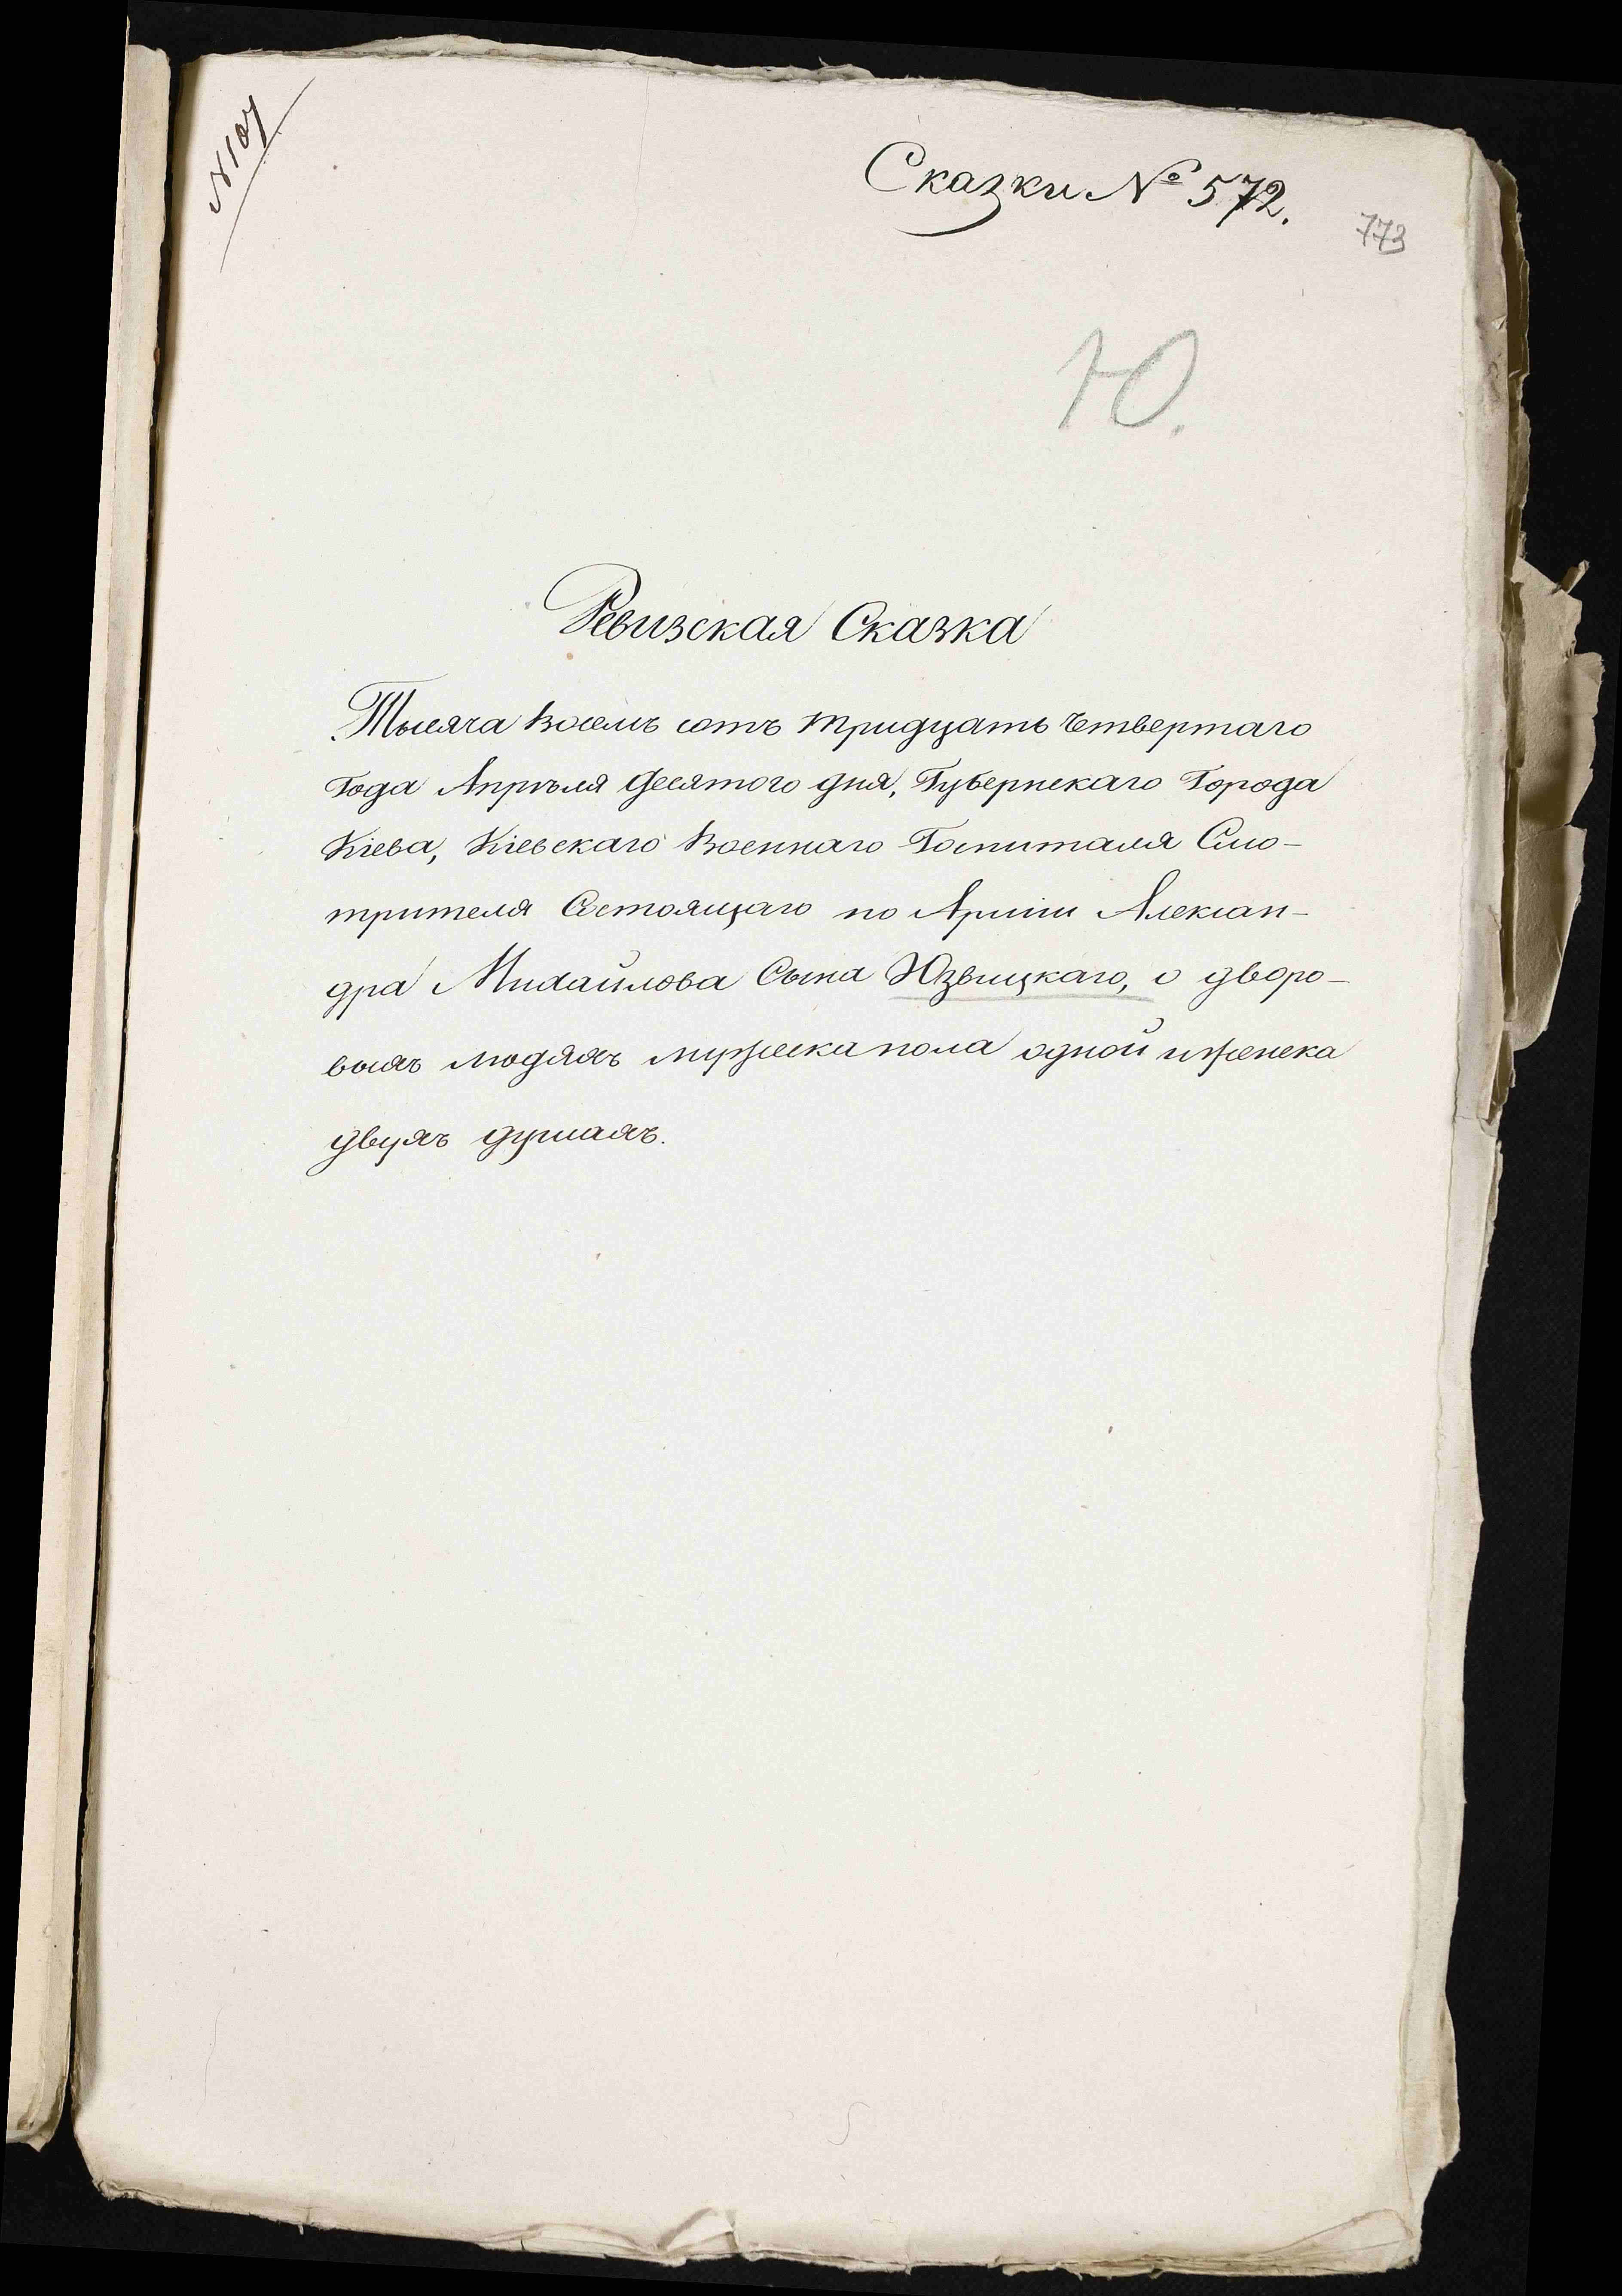 № 107
Сказки № 572.
773
Ю.
Ревизская Сказка
Тысяча восемъ сотъ тридцать четвертаго
Года Апрѣля десятого дня, Губернскаго Города
Кіева, Кіевскаго Военнаго Госпиталя Смо-
трителя Состоящаго по Арміи Алексан-
дра Михайлова Сына Юзвицкаго, о дворо-
выхъ людяхъ мужеска пола одной и женска
двухъ душахъ.